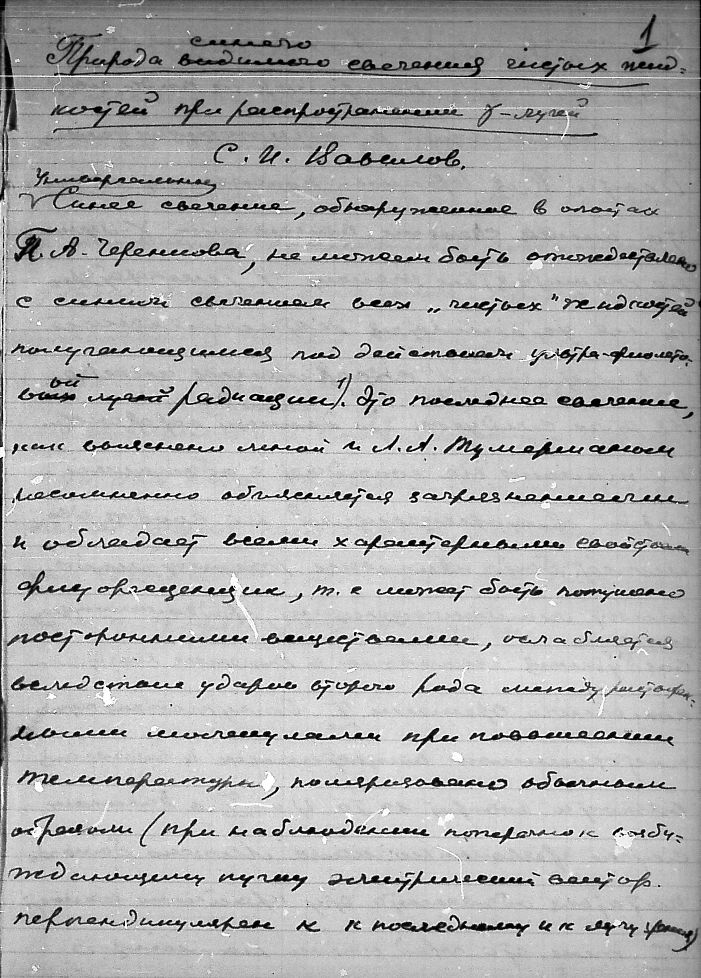 1
синего
Природа видимого свечения чистых жид-
костей при распространении γ-лучей
С. И. Вавилов.
Универсальное
Синее свечение, обнаруженное в опытах
П. А. Черенкова, не может быть отождествлено
с синим свечением всех „чистых" жидкостей
получающимся под действием ультра-фиолето-
вой радиации 1). Это последнее свечение,
как выяснено мной и Л. А. Тумерманом
несомненно объясняется загрязнениями
и обладает всеми характерными свойствами
флуоресценции, т. е может быть потушено
посторонними веществами, ослабляется
вследствие ударов второго рода между
молекулами при повышении
температуры, поляризовано обычным
образом (при наблюдении поперечно к возбу-
ждающему пучку электрический вектор
перпендикулярен к к последнему и к лучу зрения)